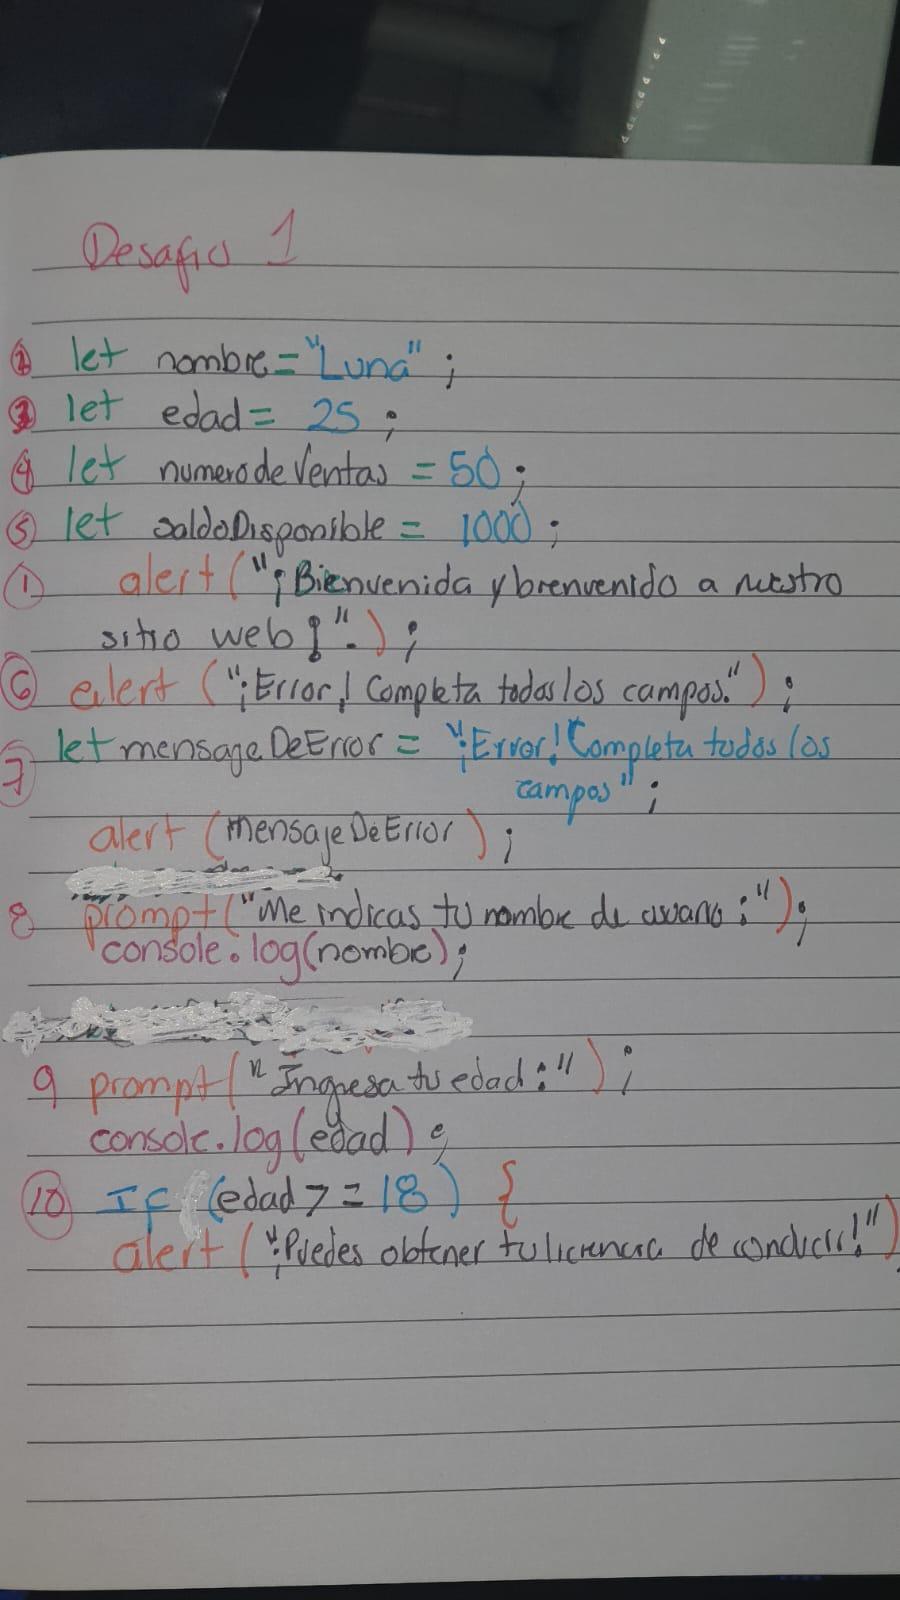 Desafio 1
2 let nombre = "Luna" ;
3 let edad = 25 ;
4 let numerodeVentas = 50 ;
5 let saldoDisponible = 1000 ;
1 alert ("¡Bienvenida y bienvenido a nuestro
sitio web!".) ;
6 alert ("¡Error! Completa todos los campos.") ;
7 let mensageDeError = "¡Error! Completa todos los
campos" ;
alert (mensajeDeError) ;
8 prompt ("Me indicas tu nombre de :") ;
console.log(nombre) ;
9 prompt (" Ingresa tu edad :") ;
console.log(edad) ;
10 If (edad >= 18) {
alert ("¡Puedes obtener tu licencia de conducir!")